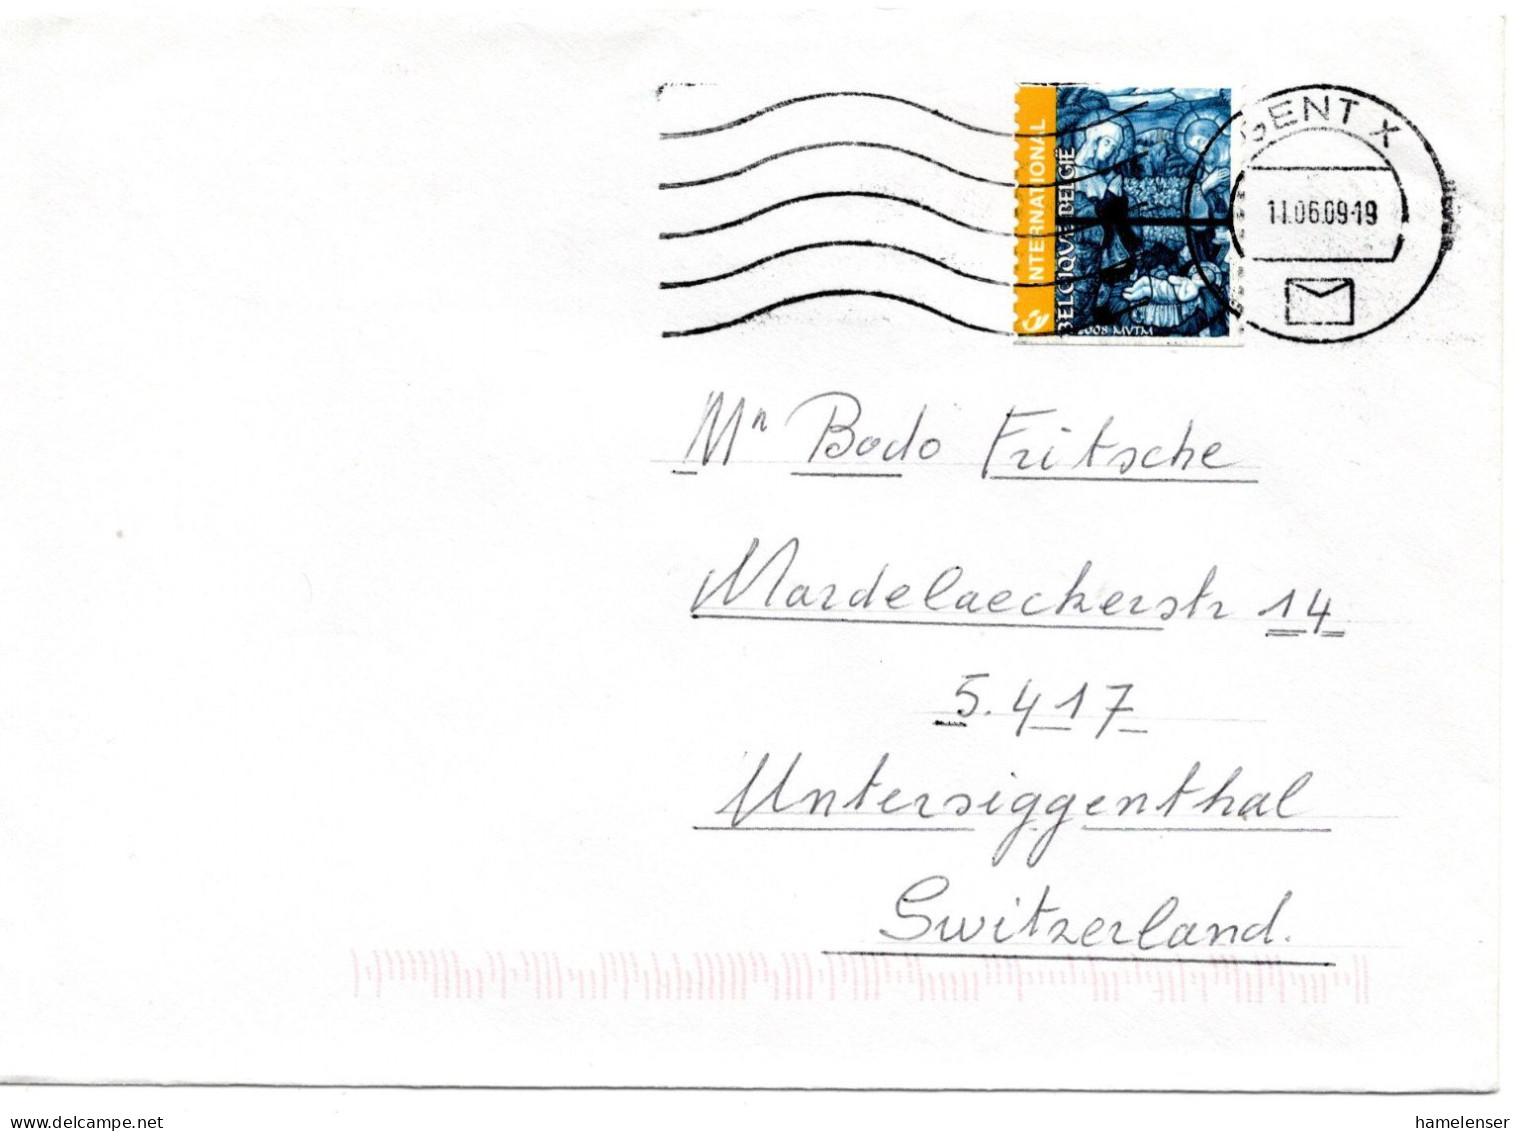 GENT X
11.06.09-19
INTERNATIONAL
BELGIQUE BELGIË
2008 MVTM
Mr Bodo Fritsche
Mardelaeckerstr 14
5.417
Untersiggenthal
Switzerland.
www.delcampe.net
hamelenser